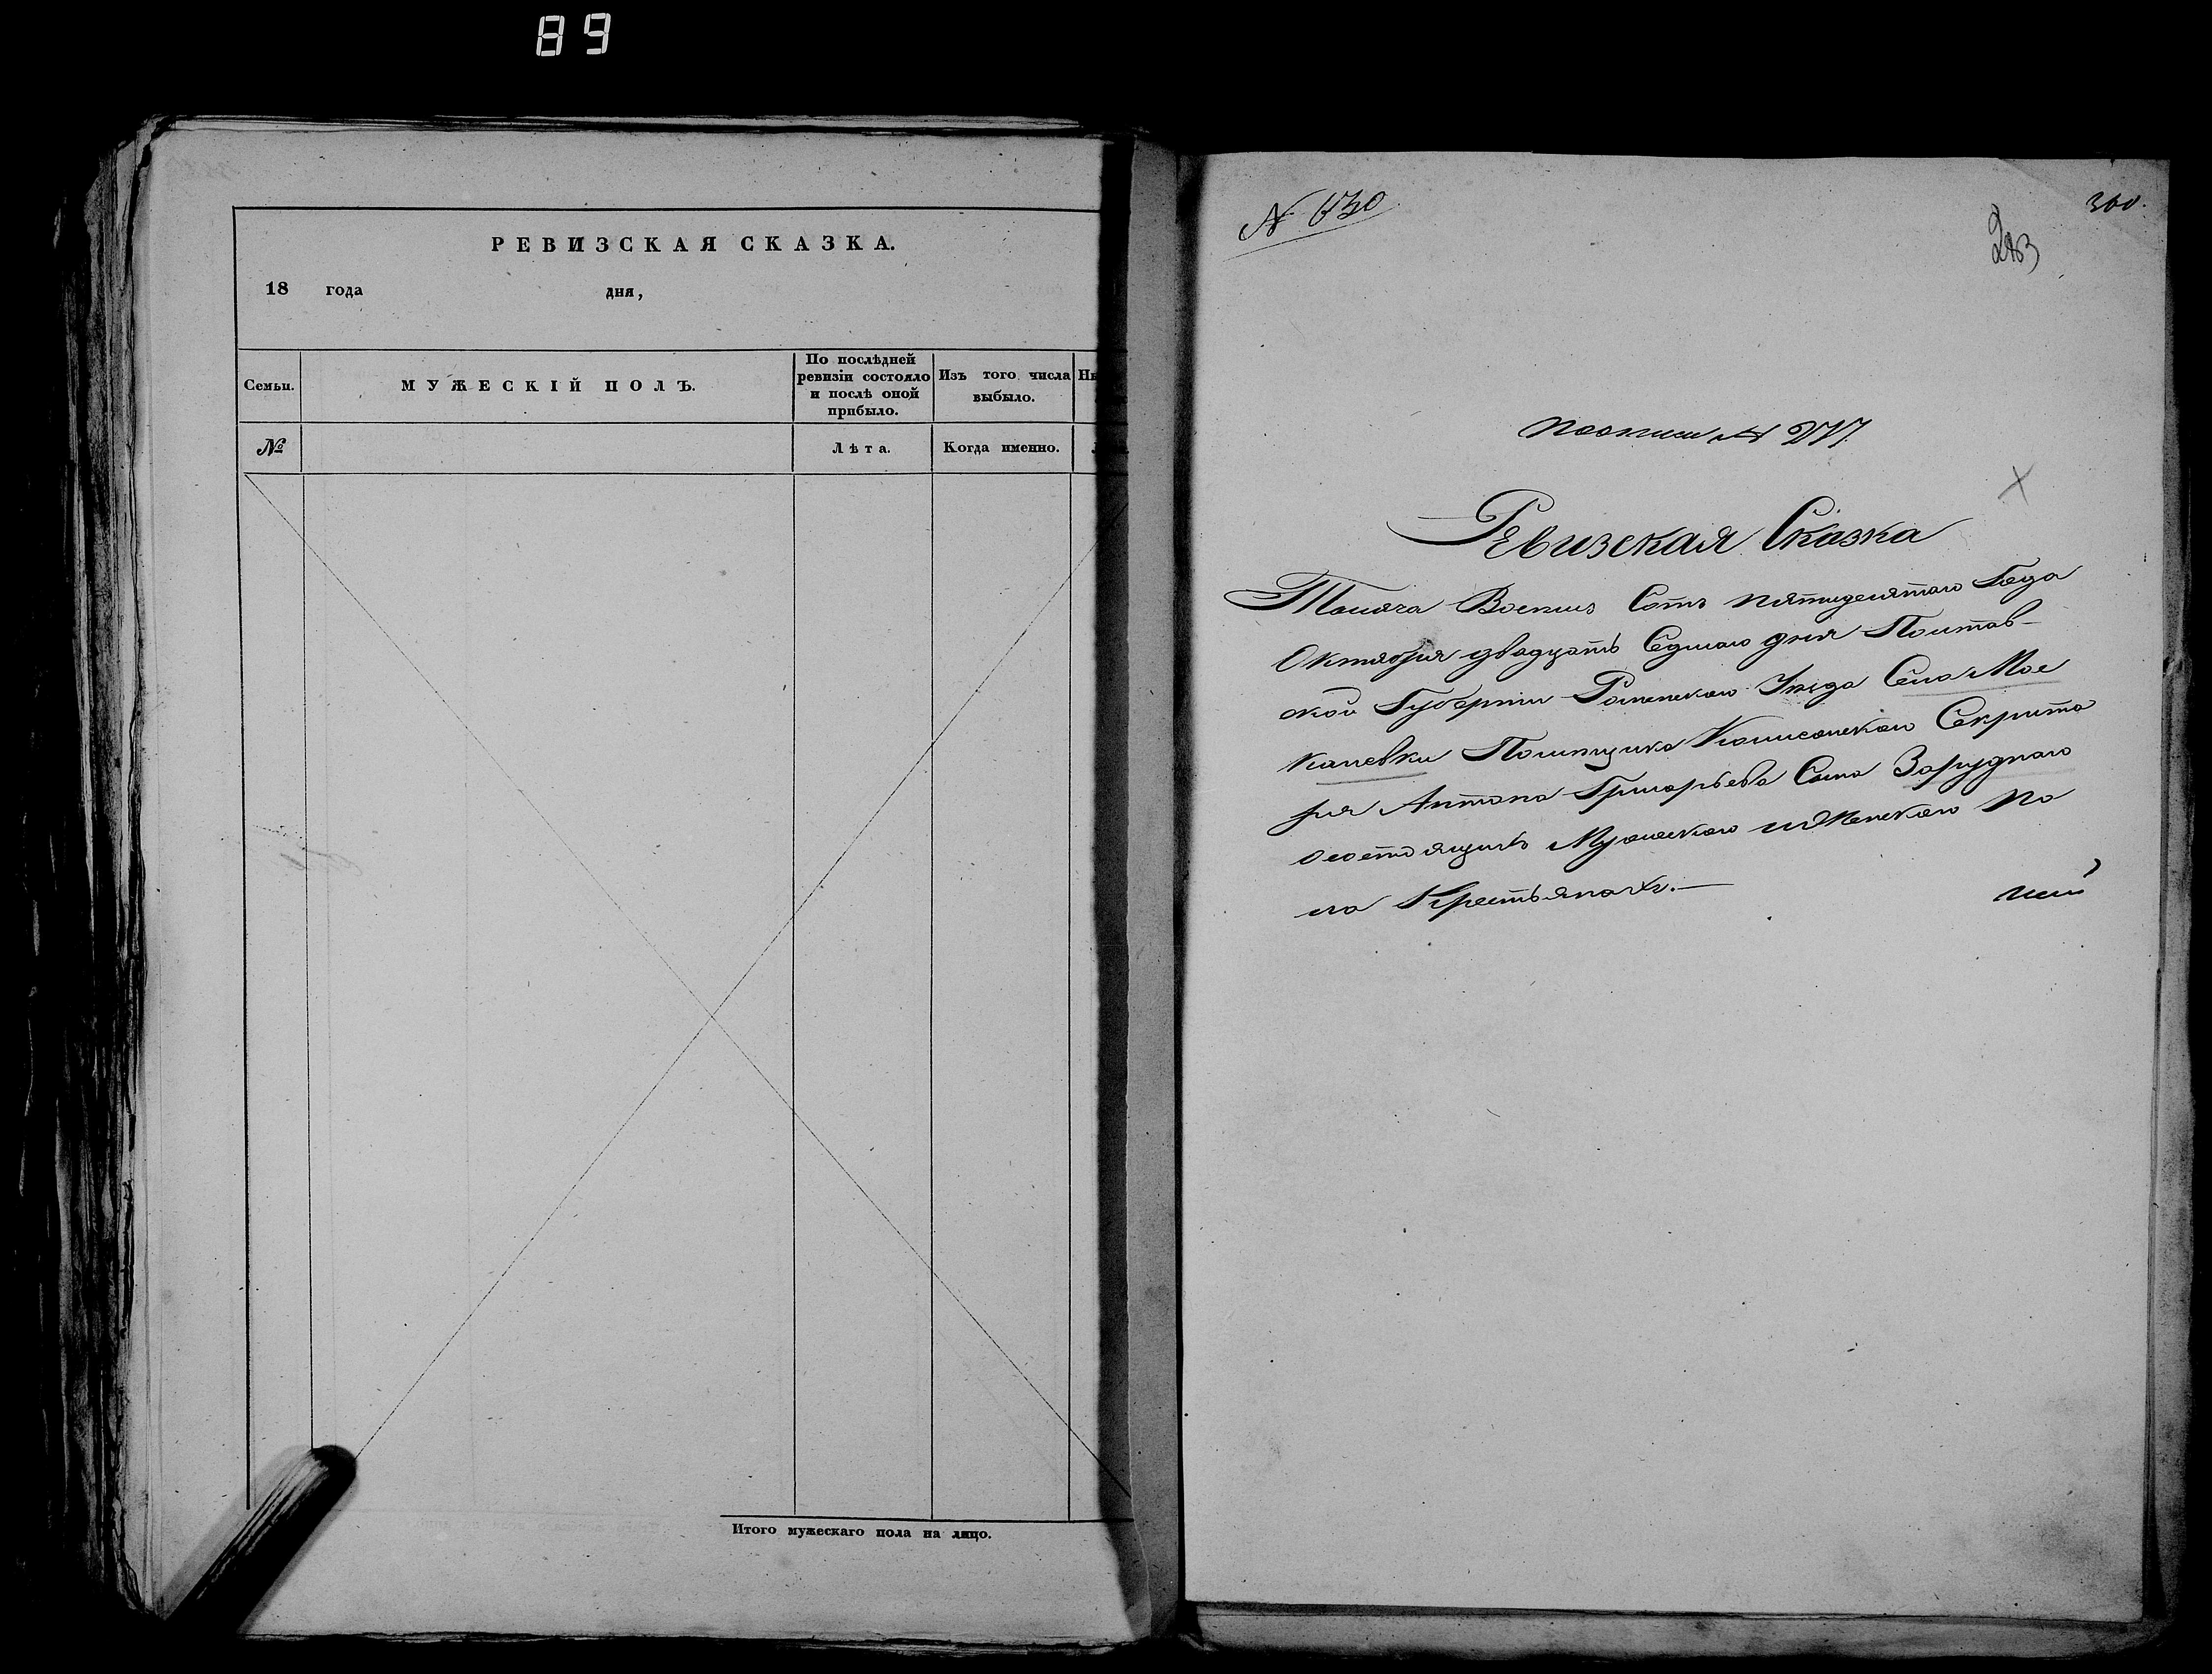 89
РЕВИЗСКАЯ СКАЗКА.
18 года дня,
Семьи.
МУЖЕСКІЙ ПОЛЪ.
По послѣдней
ревизіи состояло
и послѣ оной
прибыло.
Изъ того числа
выбыло.
№
Лѣта.
Когда именно.
Итого мужескаго пола на лицо.
N 630
300.
Поописи N
Ревизская Сказка
Тысяча Восемь Сотъ пятидесятаго Года
Октября двадцать Седмаго дня Полтав-
ской Губерніи Роменскаго Уезда Села Мос
калевки Помещика Колисскаго Секрета
ря Антона Григорьева Сына Заруднаго
осостоящихъ Мужескаго иженскаго По
ла Крестьянахъ.—